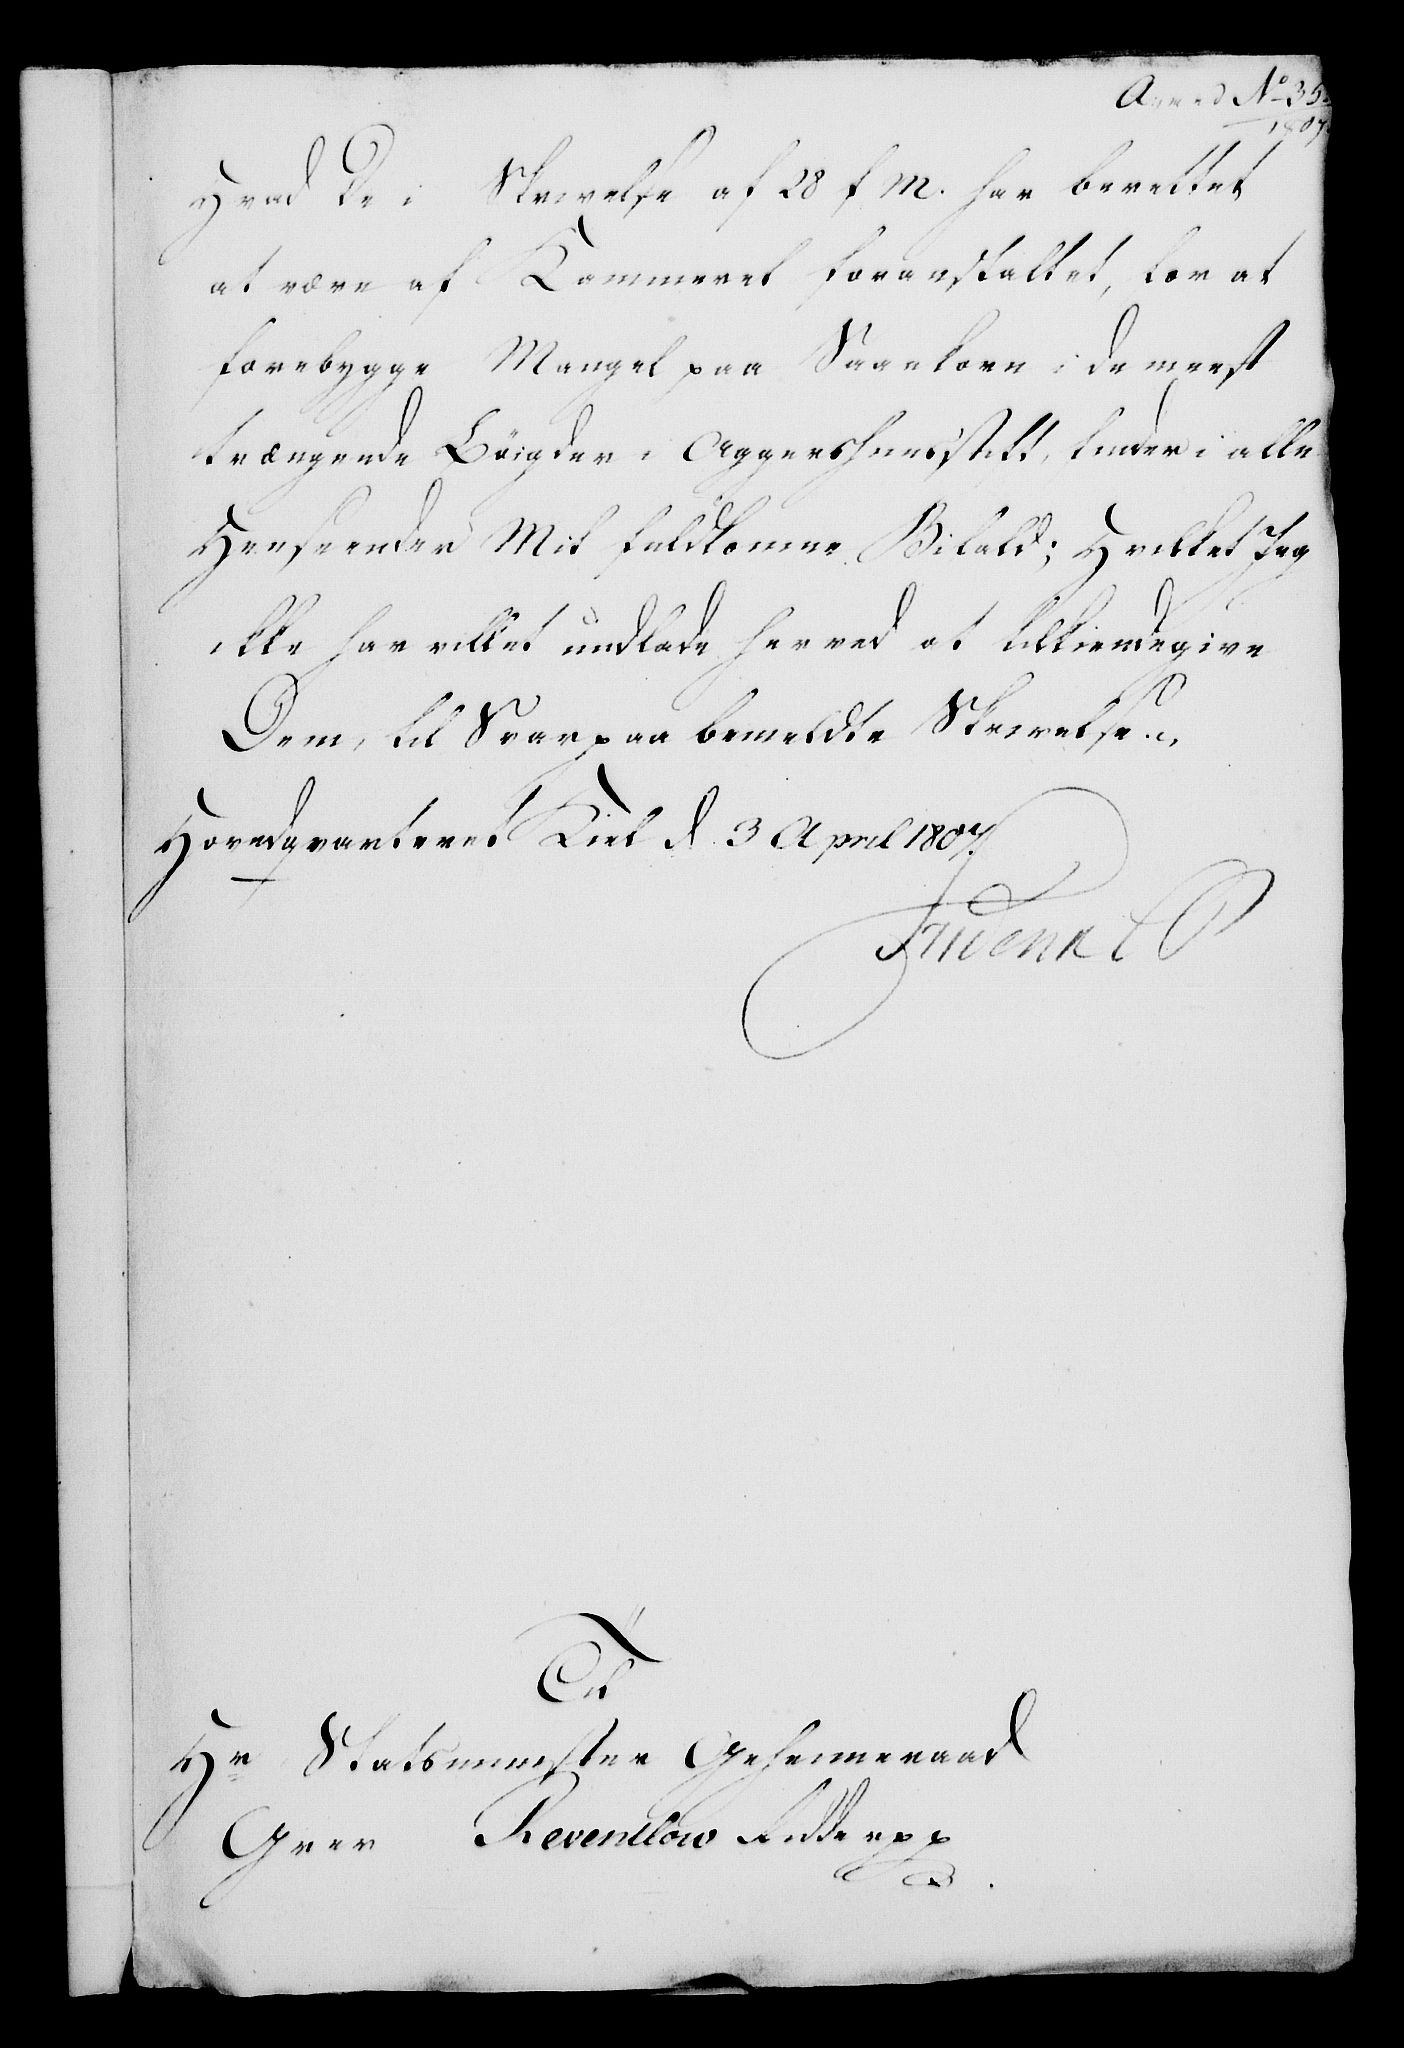 No 35
1807
Hvad De i Skrivelse af 28 f M. har berettet
at være af Kammeret foranstaltet, for at
forebygge Mangel paa Saaekorn i de meest
trængende Bøigder i Aggershuusstift, finder i alle
Henseender Mit fuldkomne Bifald; Hvilket Jeg
ikke har villet undlade herved at tilkiendegive
Dem, til Svar paa bemeldte Skrivelse.
Hovedqvarteret Kiel d. 3 April 1807.
Friderik C P
Til
Hr Statsminister Geheimeraad
Grev Reventlow Ridder p p